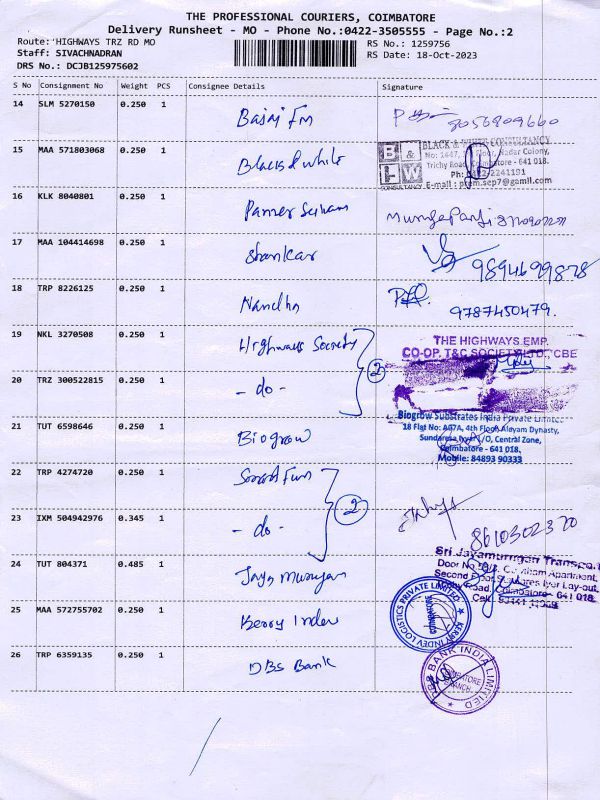 THE PROFESSIONAL COURIERS, COIMBATORE
Delivery Runsheet - MO - Phone No.:0422-3505555 - Page No.:2
Route: HIGHWAYS TRZ RD MO
Staff: SIVACHNADRAN
DRS No.: DCJB125975602
RS No.: 1259756
RS Date: 18-Oct-2023
S No Consignment No Weight PCS Consignee Details Signature
14 SLM 5270150 0.250 1 Bajaj Fin 8056809660
15 MAA 571803068 0.250 1 Black & white
B & W
CONSULTANCY
BLACK & WHITE CONSULTANCY
Nadar Colony,
Trichy Road, Coimbatore - 641 018.
Ph: 0422-2241191
E-mail : prem.sep7@gamil.com
16 KLK 8040801 0.250 1
17 MAA 104414698 0.250 1 Shankar
18 TRP 8226125 0.250 1 Nandha 9787450479.
19 NKL 3270508 0.250 1 Highways Society 2
THE HIGHWAYS EMP.
CO-OP. T&C SOCIETY LTD., CBE
20 TRZ 300522815 0.250 1 - do -
21 TUT 6598646 0.250 1 Biogrow
Biogrow Substrates India Private Limited
18 Flat No: A07A, 4th Floor, Aleyam Dynasty,
Central Zone,
Coimbatore - 641 018,
Mobile: 84893 90333
22 TRP 4274720 0.250 1 2
23 IXM 504942976 0.345 1 - do - 8610302370
24 TUT 804371 0.485 1 Jaya Murugan
Sri Jayamurugan Transport
Door No. Apartment,
Second Floor, Lay-out,
Road, Coimbatore - 641 018.
25 MAA 572755702 0.250 1 Kerry Indev
KERRY INDEV LOGISTICS PRIVATE LIMITED
COIMBATORE
26 TRP 6359135 0.250 1 DBS Bank
DBS BANK INDIA LIMITED
COIMBATORE
BRANCH